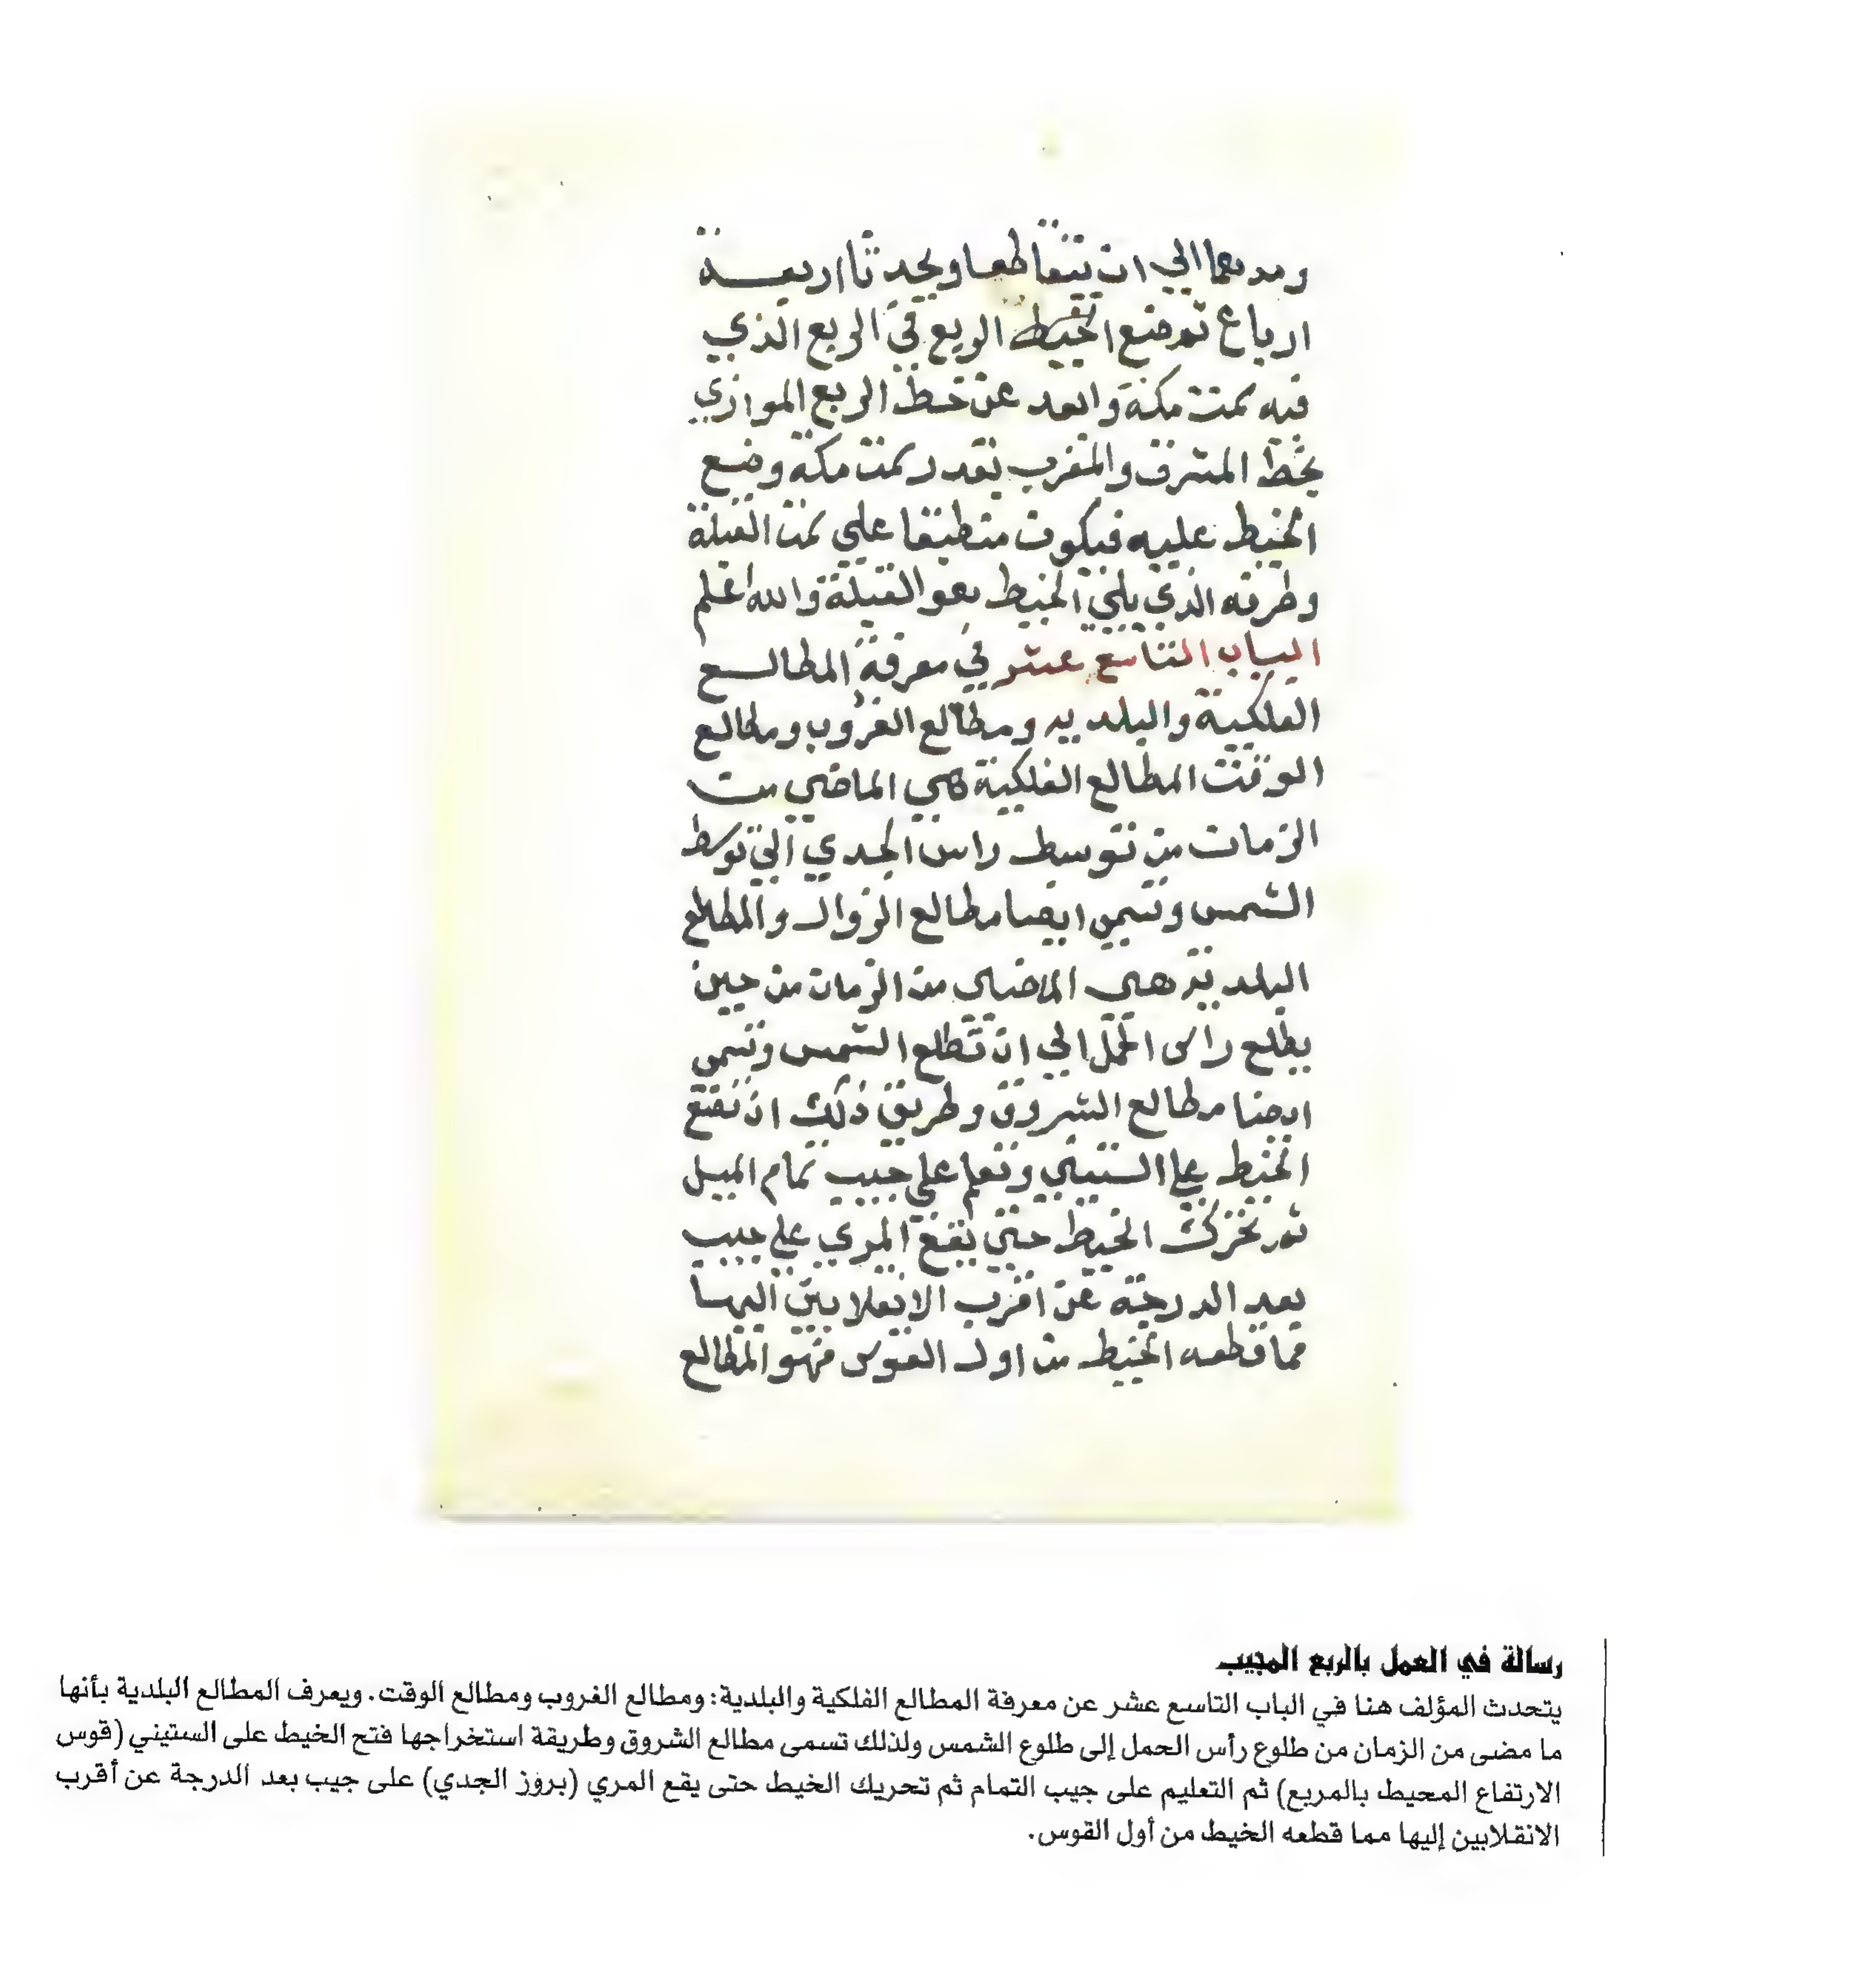 ومدهما الي ان يتقاطعا ويحدثا اربعة
ارباع ثم ضع الخيط الربع في الربع الذي
فيه سمت مكة وابعد عن خط الربع الموازي
بخط المشرق والمغرب بقدر سمت مكة وضع
الخيط عليه فيكون منطبقا علي سمت القبلة
وطرفه الذي يلي الخيط هو القبلة والله اعلم
الباب التاسع عشر في معرفة المطالع
الفلكية والبلديه ومطالع الغروب ومطالع
الوقت المطالع الفلكية هي الماضي من
الزمان من توسط راس الجدي الي توسط
الشمس وتسمي ايضا مطالع الزوال والمطالع
البلدية هي الماضي من الزمان من حين
يطلع راس الحمل الي ان تطلع الشمس وتسمي
ايضا مطالع الشروق وطريق ذلك ان تضع
الخيط علي الستيني وتعلم علي جيب تمام الميل
ثم تحرك الخيط حتي يقع المري علي جيب
بعد الدرجة عن اقرب الانقلابين اليها
فما قطعه الخيط من اول القوس فهو المطالع
رسالة في العمل بالربع المجيب
يتحدث المؤلف هنا في الباب التاسع عشر عن معرفة المطالع الفلكية والبلدية: ومطالع الغروب ومطالع الوقت. ويعرف المطالع البلدية بأنها
ما مضى من الزمان من طلوع رأس الحمل إلى طلوع الشمس ولذلك تسمى مطالع الشروق وطريقة استخراجها فتح الخيط على الستيني (قوس
الارتفاع المحيط بالمربع) ثم التعليم على جيب التمام ثم تحريك الخيط حتى يقع المري (بروز الجدي) على جيب بعد الدرجة عن أقرب
الانقلابين إليها مما قطعه الخيط من أول القوس.